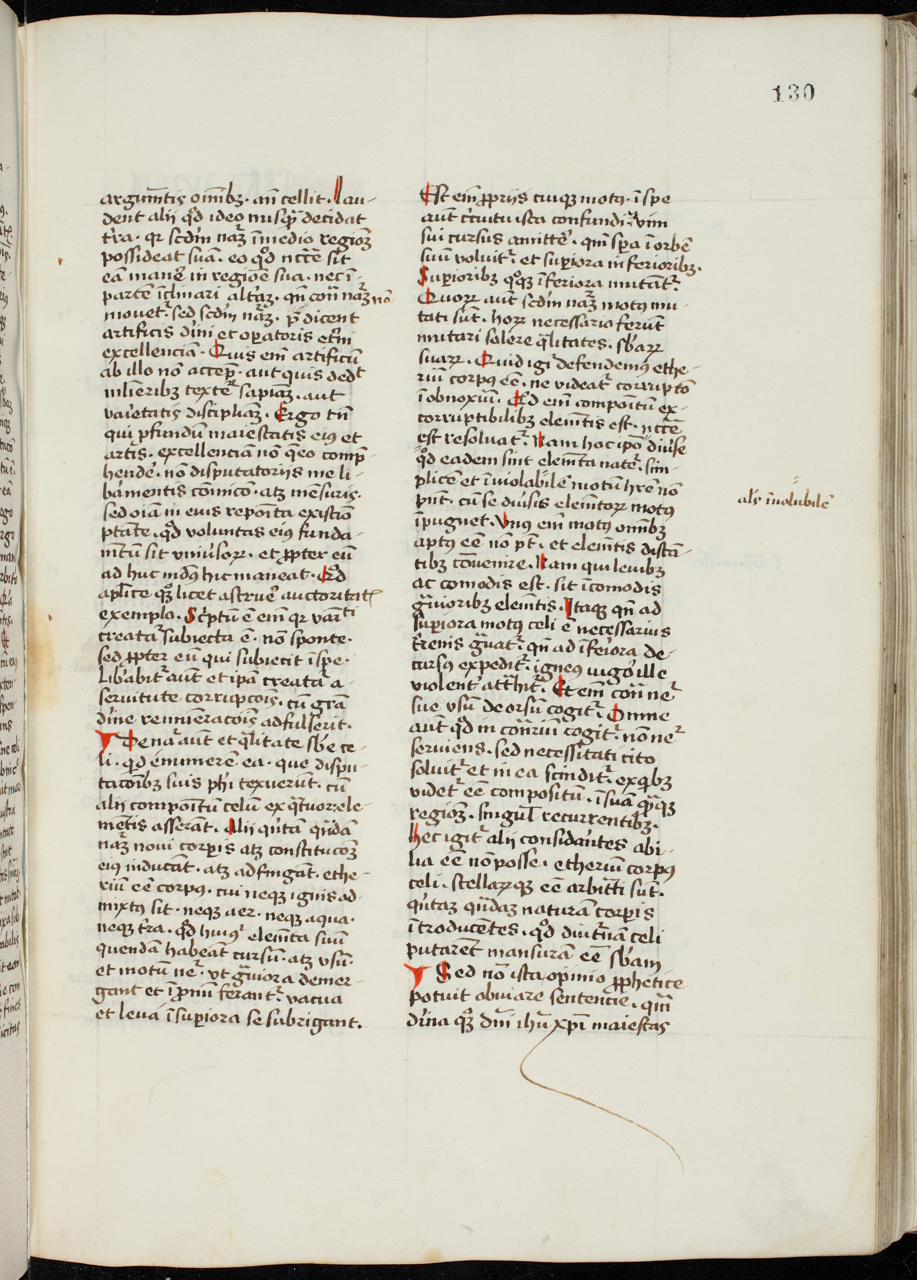 130
argumētis omībꝫ · an̄ cellit · Lau-
dent alij qđ ideo nusqȝ decidat
t̄ra · qꝛ scdm naꝫ ī medio regiōꝫ
possideat suā · eo qđ nccē sit
eā manēꝰ in regiōe sua · nec ī-
partē īclinari altaꝫ · qn̄ con̄ naꝫ nō
mouetᷣ sed scdm naꝫ · p̄dicent
artificis diu̅i et oꝑatoris et̄ni
excellenciā · Quis em̄ artificū
ab illo nō accepͭ · aut quis dedͭ
mlīeribꝫ textēͬ sapiaꝫ · aut
vaȓetatis discipliaꝫ · Ergo tn̄
qui ꝓfundū maiestatis eiꝰ et
artis · excellenciā nō q̄eo comp̄-
hendēͬ · nō disputatorijs me li-
bamentis cōmico · atꝫ mēsuris ·
sed oīa in eius reponīta existīo
ptāte · qđ voluntas eiꝰ funda-
mtū sit vniu̓soꝝ · et ꝓpter eū
ad huc mdꝰ hic maneat · Qđ
aplīce qꝫ licet astruēͬ auctoritatͤ
exemplo · Scͥptū ē em̄ qꝛ vaniti
creatā subiecta ē · nō sponte ·
sed ꝓpter eū qui subiecit ī spe ·
Lib̓abitᷣ aut̄ et ipā creatā a-
seruitute corrupcōis · cū grā
diu̅e remūeracōis adfulserit ·
De naͣ aut̄ et q̄litate sb̓e ce-
li · qđ enumerē ea · que dispu-
tacōibꝫ suis phi texuerūt · cū
alij compoītū celū ex qͣtuor ele-
mētis asserāt · Alij qͥntā qn̄dā
naꝫ noui corꝑis atꝫ constitucōꝫ
eiꝰ inducāt · atꝫ adfingāt · ethe-
riū eē corpꝰ · cui neqꝫ ignis ad-
mixtꝰ sit · neqꝫ aer · neqꝫ aqua ·
neqꝫ t̄ra · qđ huiꝰ elemēta suū
quendā habeāt cursū · atꝫ vsū ·
et motū neͬ · vt gͣuiora demer-
gant et ī ꝓnū ferantᷣ vacua
et leua ī suꝑiora se subrigant ·
Est em̄ ꝓprijs cuiqꝫ motꝰ · ī spe
aut̄ circuitu ista confundi · vim
sui cursus amittēͬ · qm̄ spa ī orbē
suū voluitᷣ · et suꝑiora inferioribꝫ ·
Suꝑioribꝫ qꝫ īferiora mutātᷣ ·
Quoꝝ aut̄ scdm naꝫ motꝰ mu-
tati sūt · hoꝝ necessaria ferūt
mutari solere q̄litates · sb̓aꝝ
suaꝝ · Quid igͥ defendemꝰ ethe-
riū corpꝰ eē · ne videatᷣ corrupto
ī obnoxiū · Qđ em̄ compoītū ex-
corruptibilibꝫ elemītis est · nccē
est resoluatᷣ · Nam hoc ipō diuͥse
qđ eadem sint elemīta nateͬ · sim-
plicē et īuiolabilē motū hr̄e nō
pn̄t · cū se diu̓sis elemītoꝝ motꝰ
īpugnet · Vnꝰ em̄ motꝰ omībꝫ
aptꝰ eē nō pt̄ · et elemītis distā-
tibꝫ cōuenire · Nam qui leuibꝫ
ac comodis est · sit īcomodis
gͣuioribꝫ elemītis · Itaqꝫ qn̄ ad
suꝑiora motꝰ celi ē necessarius
t̄renis gͣuatᷣ · qn̄ ad īferiora de-
cursꝰ expeditᷣ · igneꝰ uigor ille
violentͬ att̄hitᷣ · Et em̄ con̄ neͬ
sue vsū deorsū cogitᷣ · Omne
aut̄ qđ in con̄riū cogitᷣ · nō neͬ
seruiens · sed necessitati cito
soluitᷣ et in ea scinditᷣ · ex qͥbꝫ
videtᷣ eē compositū · ī suā qͣqꝫ
regiōꝫ · singul̄ recurrentibꝫ ·
Hec igitᷣ alij considantes abi-
lia eē nō posse · etheriū corpꝰ
celi · stellaꝝqꝫ eē arbitͣti sūt ·
qͥntaꝫ qn̄daꝫ naturā corꝑis
ītroducētes · qđ diut̓nā celi
putarēt mansurā eē sb̓am
Sed nō ista opinio ꝓphetice
potuit obuiare sentencie · qm̄
diu̅a qꝫ dn̄i ihū xp̄i maiestas
al's īuolubilē